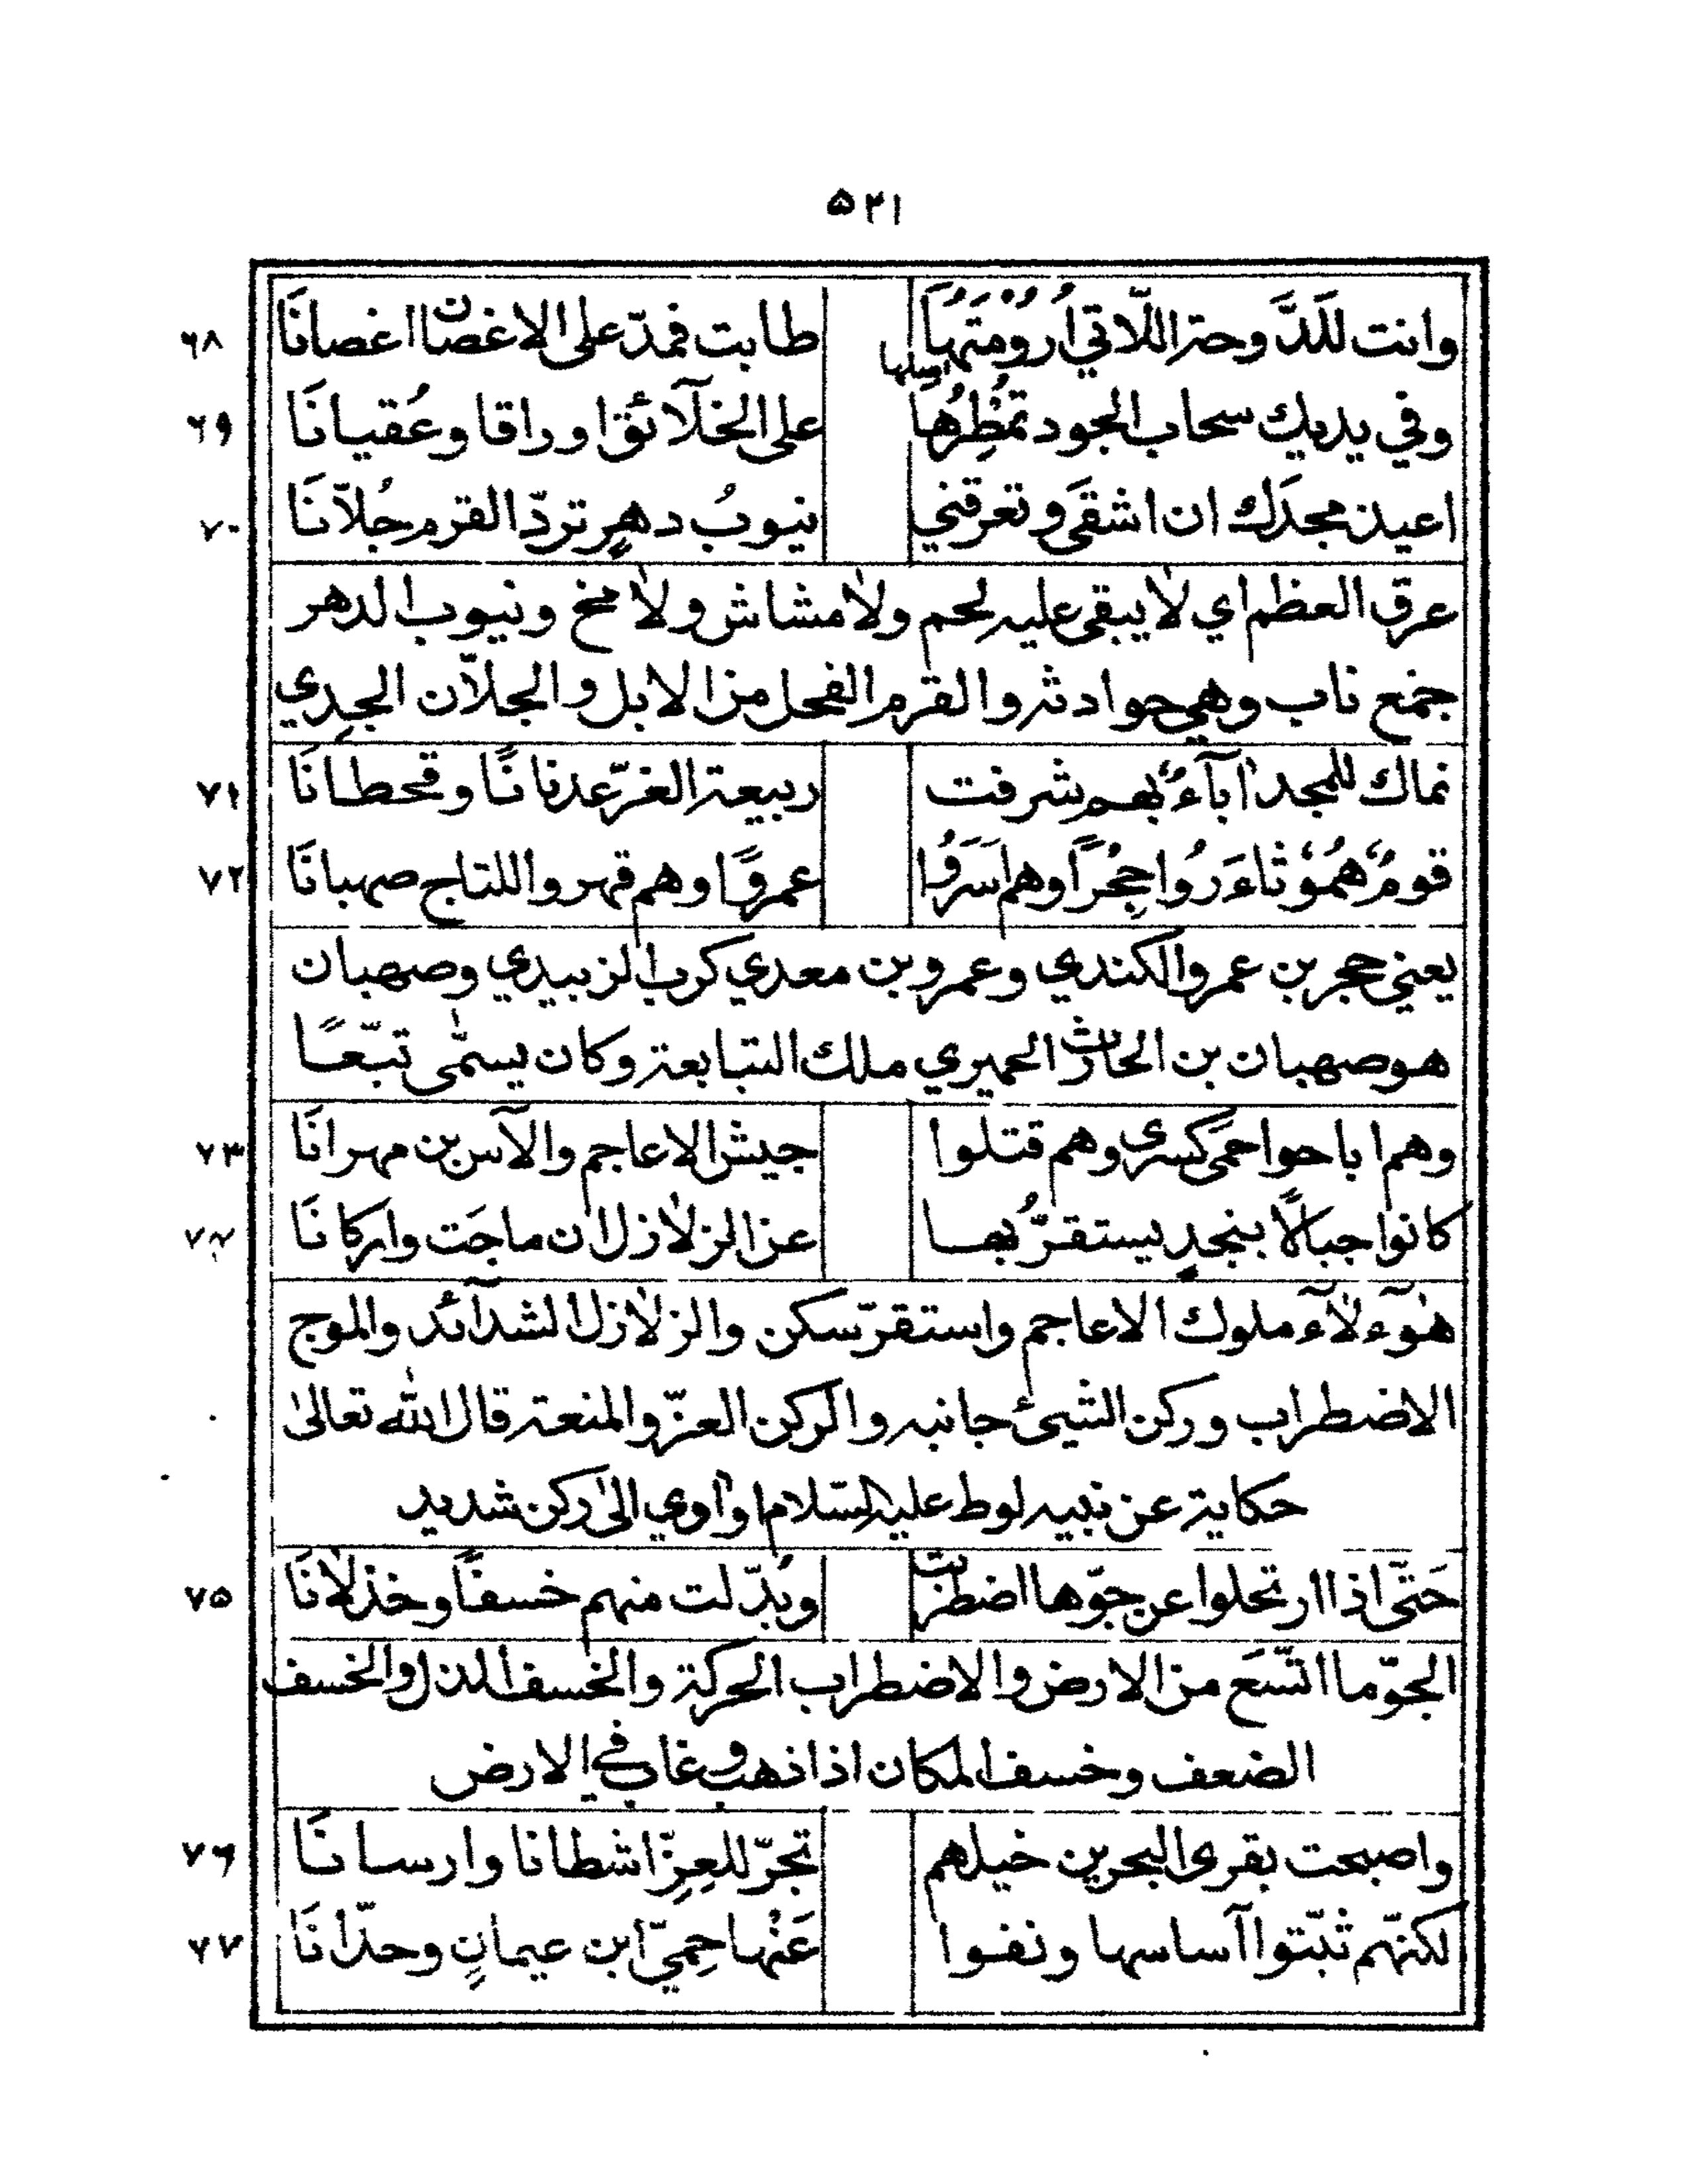 ٥٢١
وانت للَدَّوحة اللّاتي اُرُوْمَتُهَا طابت فمدّ على الاغصان اغصانَا ٦٨
اصلها
وفي يديك سحاب الجود تمُطِرُها على الخلآئق اوراقا وعُقيانَا ٦٩
اعيذ مجدَك ان اشقَى وتعرقني نيوبُ دهرٍ تردّ القرم جُلاّنَا ٧٠
عرق العظم اي لا يبقى عليه لحم ولا مشاش ولا مخ ونيوب الدهر
جمع ناب وهي حوادثه والقرم الفحل من الابل والجلاّن الجدِي
نماك للمجد اٰبآءٌ بهم شرفت ربيعة الغرّ عدنانًا وقحطانَا ٧١
قومٌ هُمُوْ ثاءَرُوا حِجُرًا وهم اَسَرُوا عمروًا وهم قهروا للتاج صهبانَا ٧٢
يعني حجر بن عمرو الكندي وعمرو بن معدي كرب الزبيدي وصهبان
هو صهبان بن الحارث الحميري ملك التبابعة وكان يسمّٰى تبّعًا
وهم اباحوا حمَى كسرى وهم قتلوا جيش الاعاجم والآس بن مهرانَا ٧٣
كانوا جبالًا بنجدٍ يستقرُّ بها عن الزلازل ان ماجَت واركانَا ٧٤
هٰؤلآء ملوك الاعاجم واستقرّ سكن والزلازل الشدآئد والموج
الاضطراب وركن الشيئ جانبه والركن العزّ والمنعة قال الله تعالىٰ
حكاية عن نبيه لوط عليه السّلام او اٰوي الىٰ ركن شديد
حَتّٰى اذا ارتحلوا عن جوّها اضطربت وبُدّلت منهم خسفًا وخذلانَا ٧٥
الجوّ ما اتّسَعَ من الارض والاضطراب الحركة والخسف الذل والخسف
الضعف وخسف المكان اذا ذهب وغاب في الارض
واصبحت بقرى البحرين خيلهم تجرّ للعِزِّ اشطانا وارسانَا ٧٦
لكنّهم ثبّتوا آساسها ونفوا عَنْها حِمِيّ ابن عيمانٍ وحدّانَا ٧٧